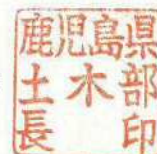 鹿児島県
土木部
長印